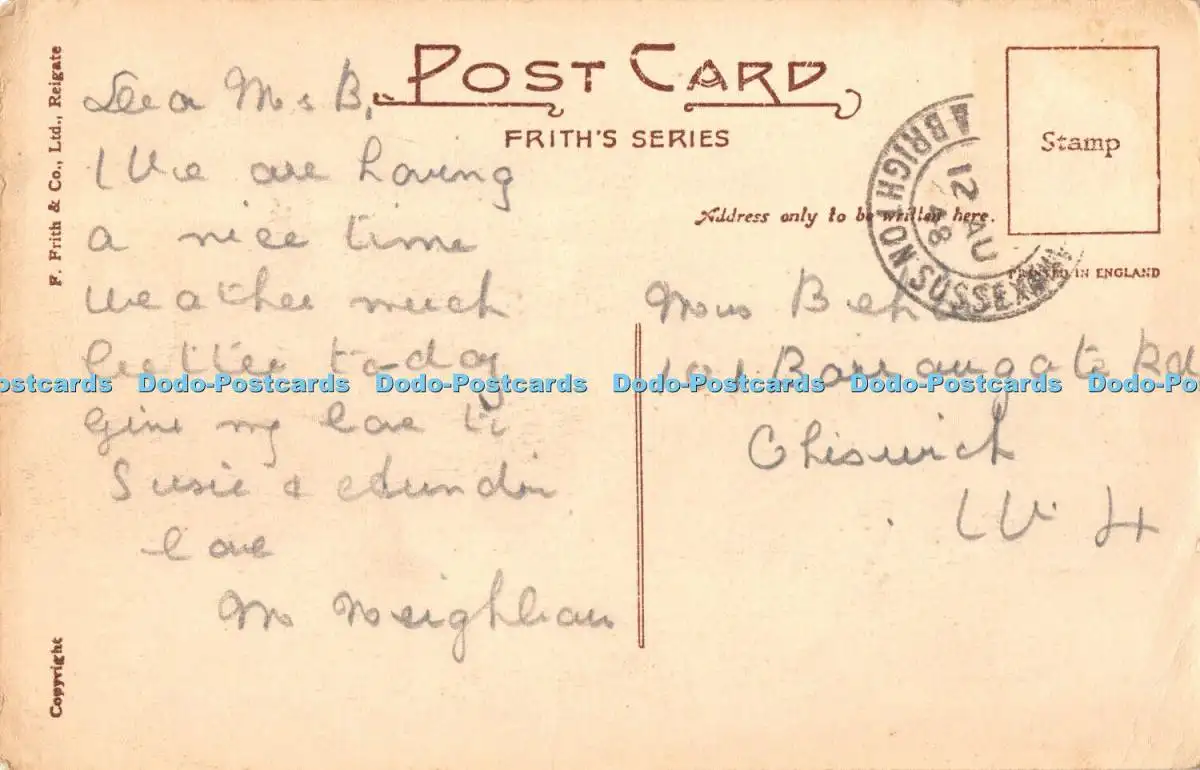 POST CARD
FRITH'S SERIES
F. Frith & Co., Ltd., Reigate
Copyright
Stamp
Address only to be written here.
PRINTED IN ENGLAND
BRIGHTON SUSSEX
A
12 AU
48
Dear Mrs B.
We are having
a nice time
weather much
better to-day
give my love to
Susie &
love
M
Barrowgate Rd
Chiswick
W. 4
Dodo-Postcards Dodo-Postcards Dodo-Postcards Dodo-Postcards